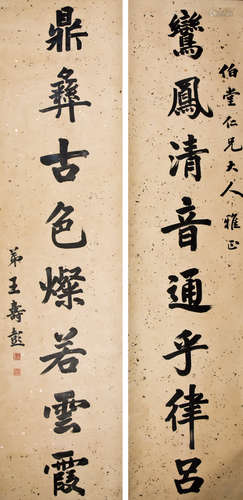 伯堂仁兄大人雅正
鸞鳳清音通乎律呂
鼎彝古色燦若雲霞
弟王壽彭